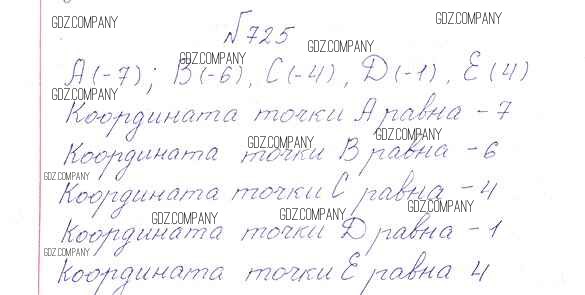 GDZ.COMPANY GDZ.COMPANY
№725
GDZ.COMPANY
GDZ.COMPANY
A(-7); B(-6), C(-4), D(-1), E(4)
GDZ.COMPANY GDZ.COMPANY
Координата точки A равна -7
GDZ.COMPANY GDZ.COMPANY
Координата точки B равна -6
GDZ.COMPANY
Координата точки C равна -4
GDZ.COMPANY GDZ.COMPANY GDZ.COMPANY
Координата точки D равна -1
GDZ.COMPANY
Координата точки E равна 4